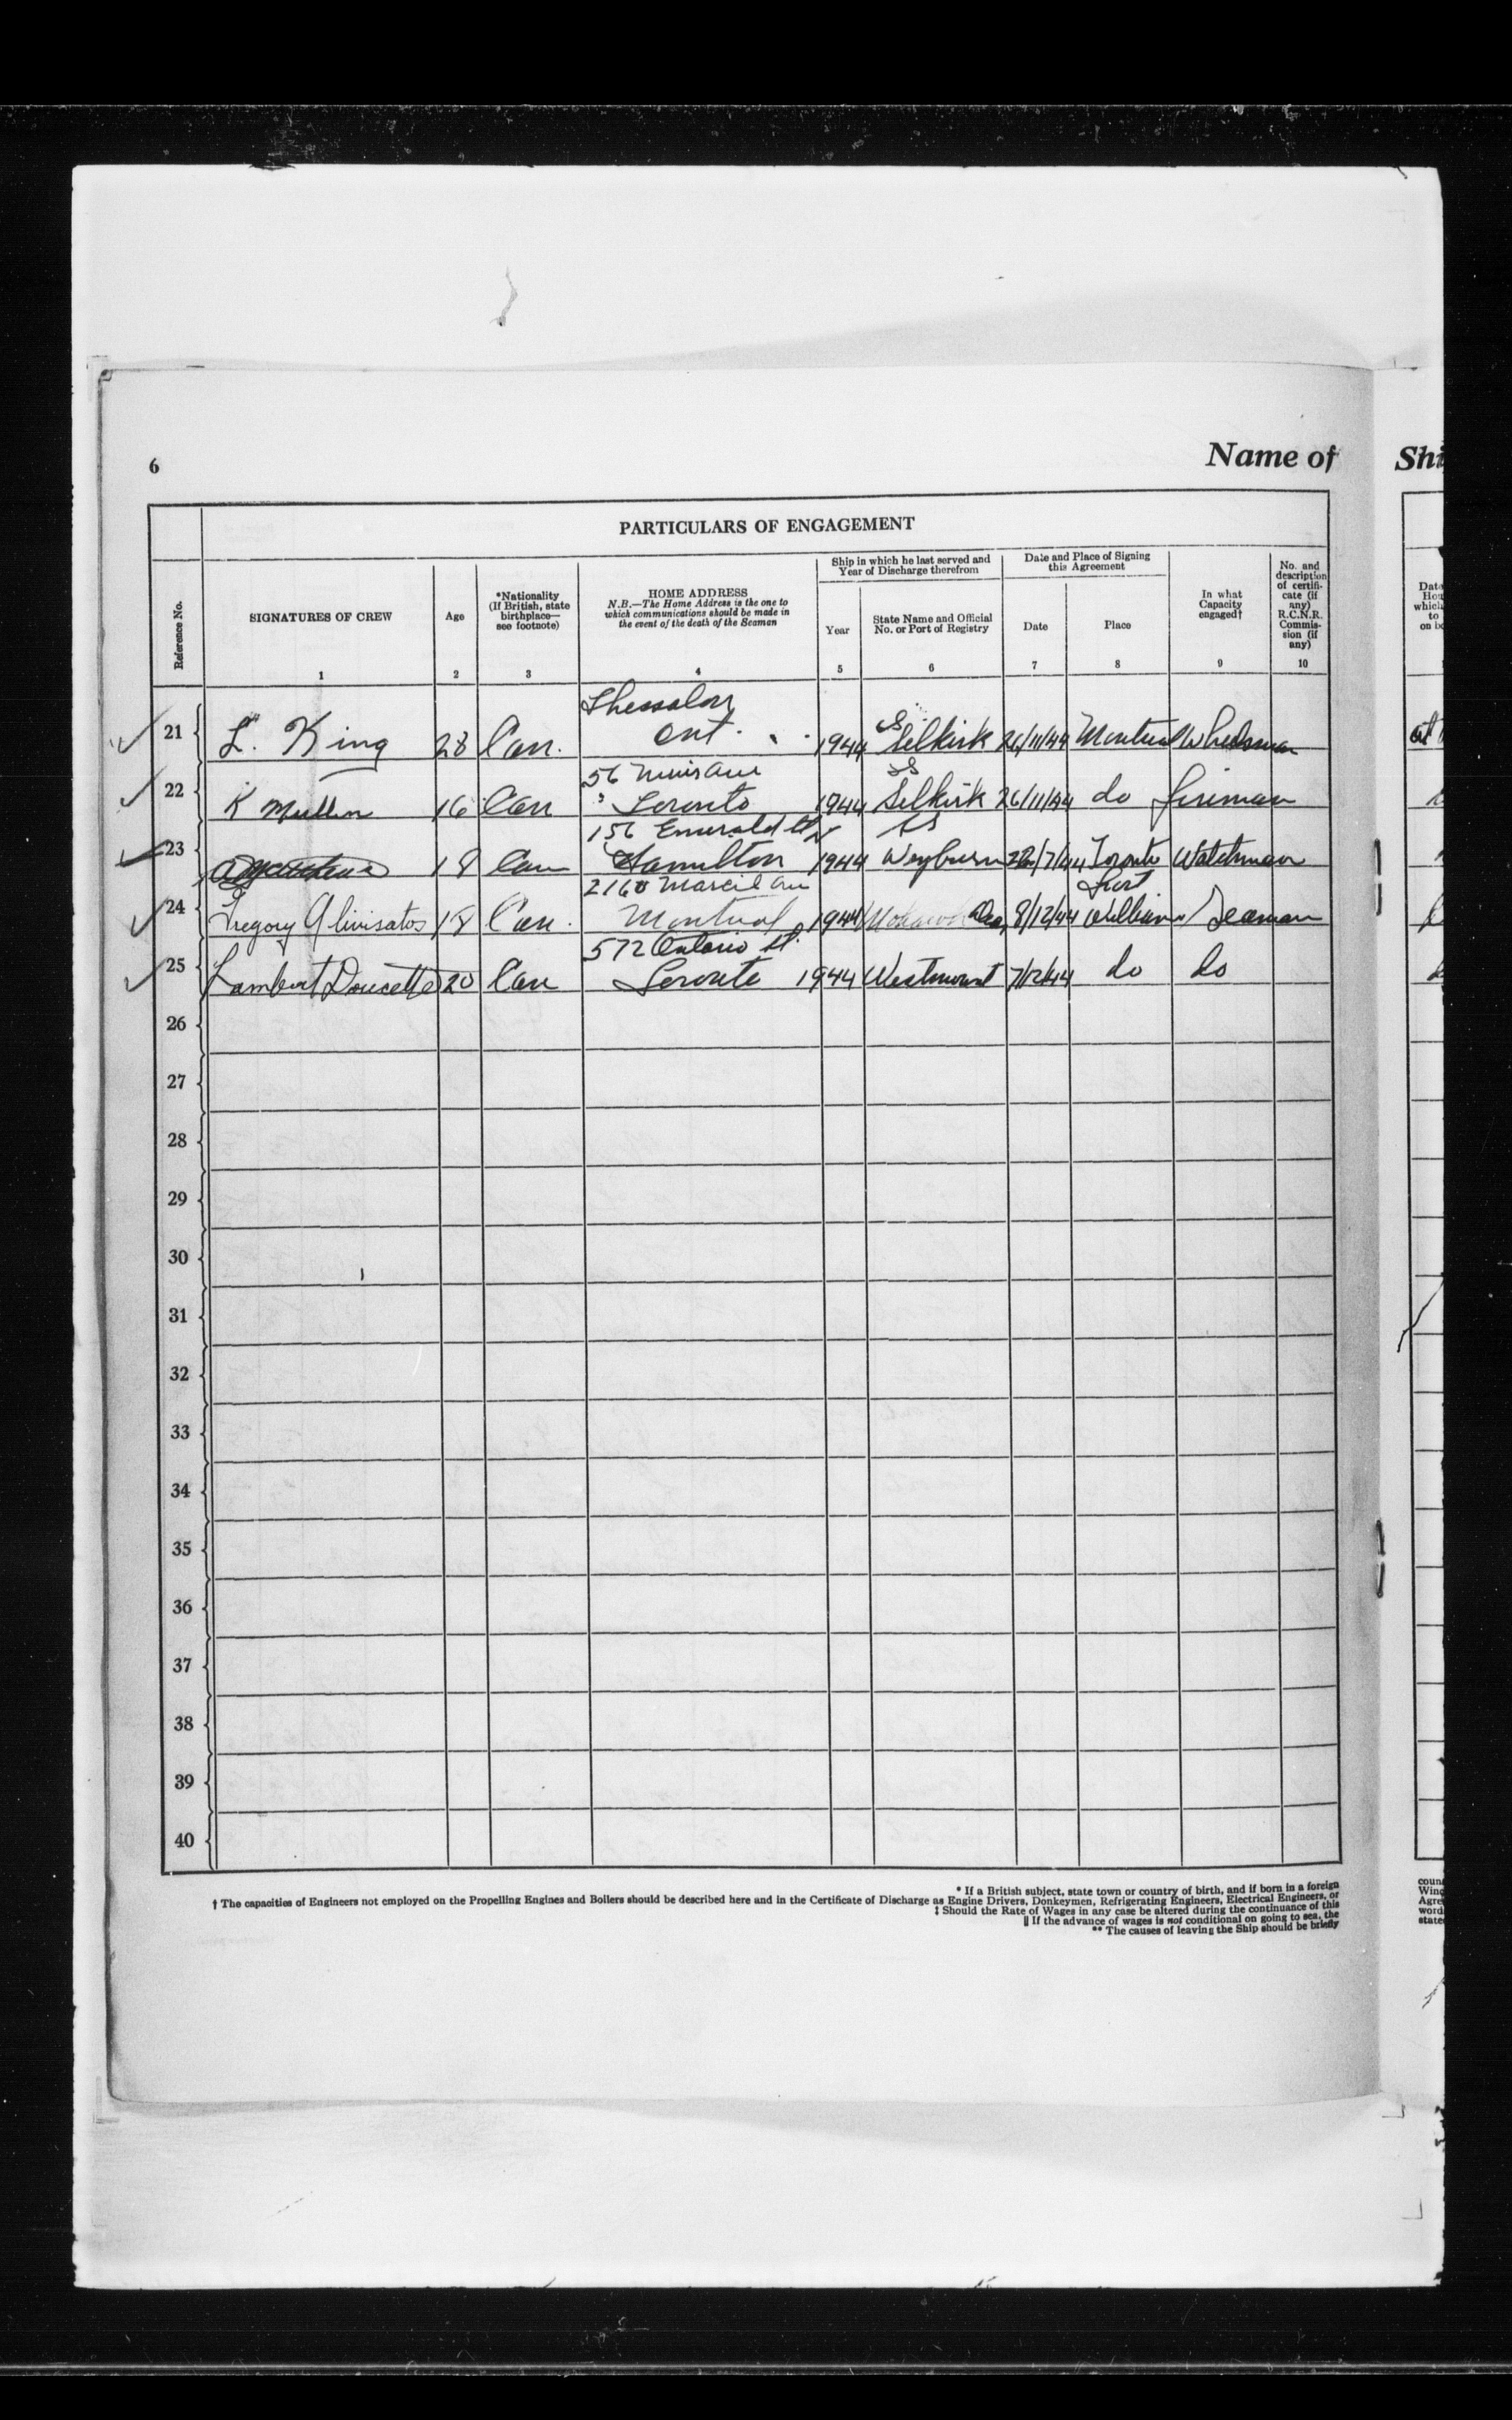 6
Name of
Shi
PARTICULARS OF ENGAGEMENT
Reference No.
SIGNATURES OF CREW
1
Age
2
*Nationality
(If British, state
birthplace—
see footnote)
3
HOME ADDRESS
N.B.—The Home Address is the one to
which communications should be made in
the event of the death of the Seaman
4
Ship in which he last served and
Year of Discharge therefrom
Year
5
State Name and Official
No. or Port of Registry
6
Date and Place of Signing
this Agreement
Date
7
Place
8
In what
Capacity
engaged†
9
No. and
description
of certifi-
cate (if
any)
R.C.N.R.
Commis-
sion (if
any)
10
Thessalon
21 L. King 28 Can. Ont. 1944 SS Selkirk 26/11/44 Montreal Wheelsman
22 K Mullen 16 Can Toronto 1944 SS Selkirk 26/11/44 do fireman
156 Emerald St N
23 18 Can Hamilton 1944 SS Weyburn /7/44 Toronto Watchman
2160 Marcil Ave
24 Gregory Alivisatos 18 Can. Montreal 1944 8/12/44 Fort William Seaman
572 Ontario St.
25 Lambert Doucette 20 Can Toronto 1944 Westmount 7/12/44 do do
26
27
28
29
30
31
32
33
34
35
36
37
38
39
40
* If a British subject, state town or country of birth, and if born in a foreign
† The capacities of Engineers not employed on the Propelling Engines and Boilers should be described here and in the Certificate of Discharge as Engine Drivers, Donkeymen, Refrigerating Engineers, Electrical Engineers, or
‡ Should the Rate of Wages in any case be altered during the continuance of this
|| If the advance of wages is not conditional on going to sea, the
** The causes of leaving the Ship should be briefly